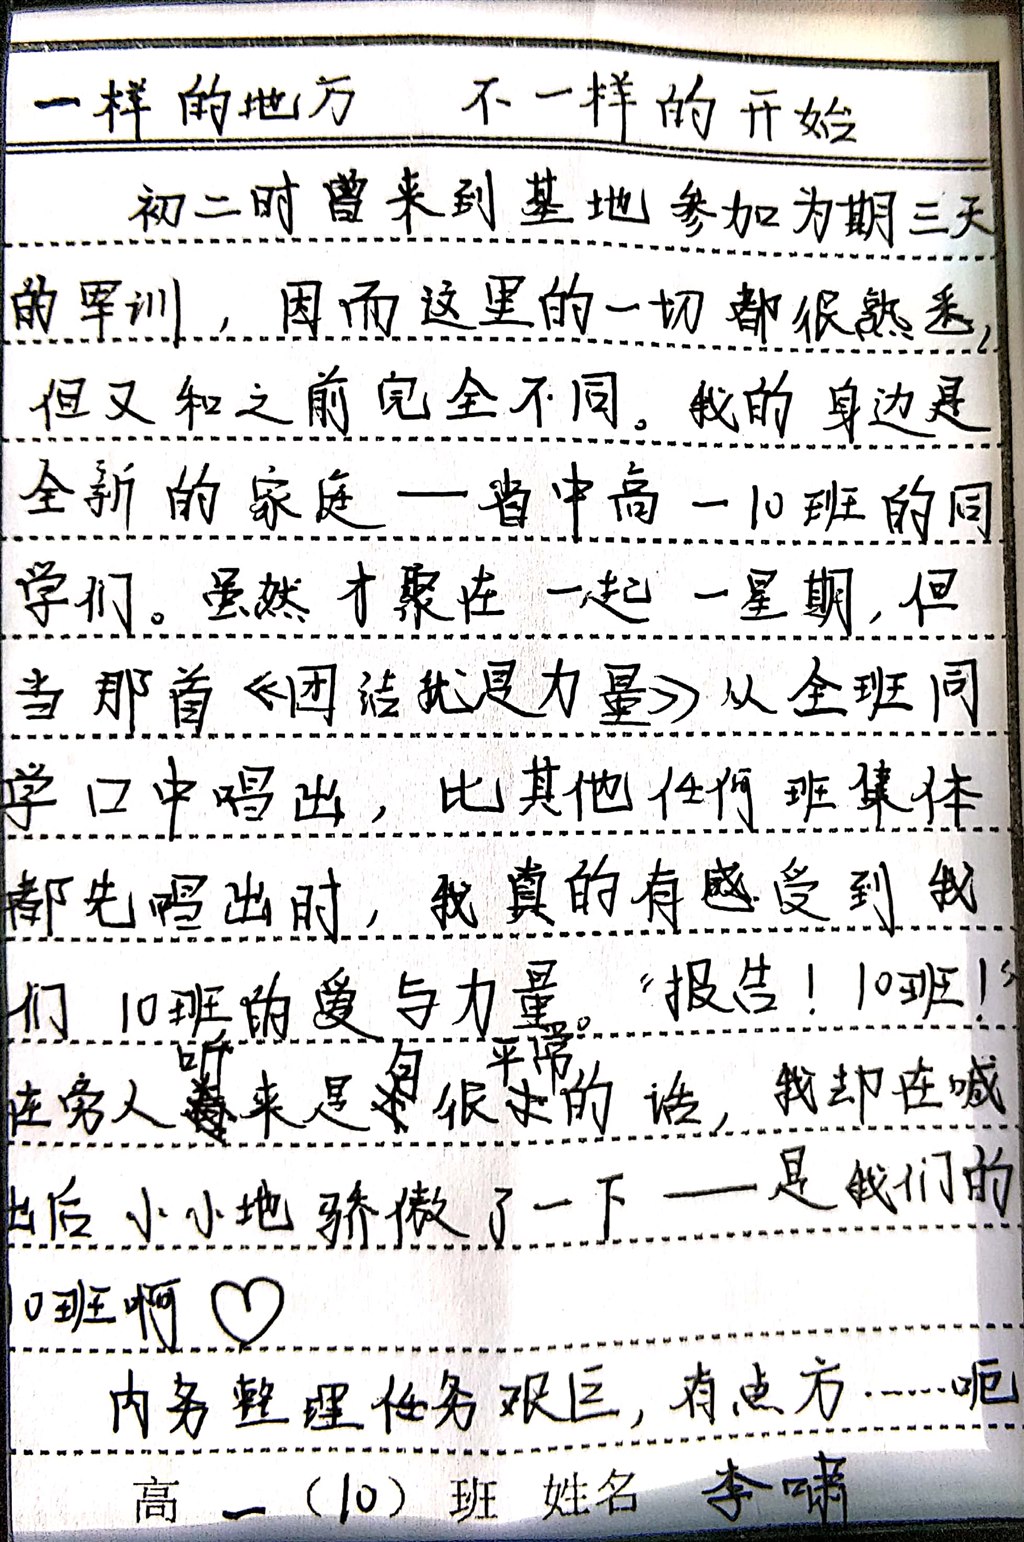 一样的地方 不一样的开始
初二时曾来到基地参加为期三天
的军训，因而这里的一切都很熟悉，
但又和之前完全不同。我的身边是
全新的家庭——省中高一10班的同
学们。虽然才聚在一起一星期，但
当那首《团结就是力量》从全班同
学口中唱出，比其他任何班集体
都先唱出时，我真的有感受到我
们10班的爱与力量。“报告！10班！”
在旁人听来是句很平常的话，我却在喊
出后小小地骄傲了一下——是我们的
10班啊♡
内务整理任务艰巨，有点方……呃
高一（10）班 姓名 李啸